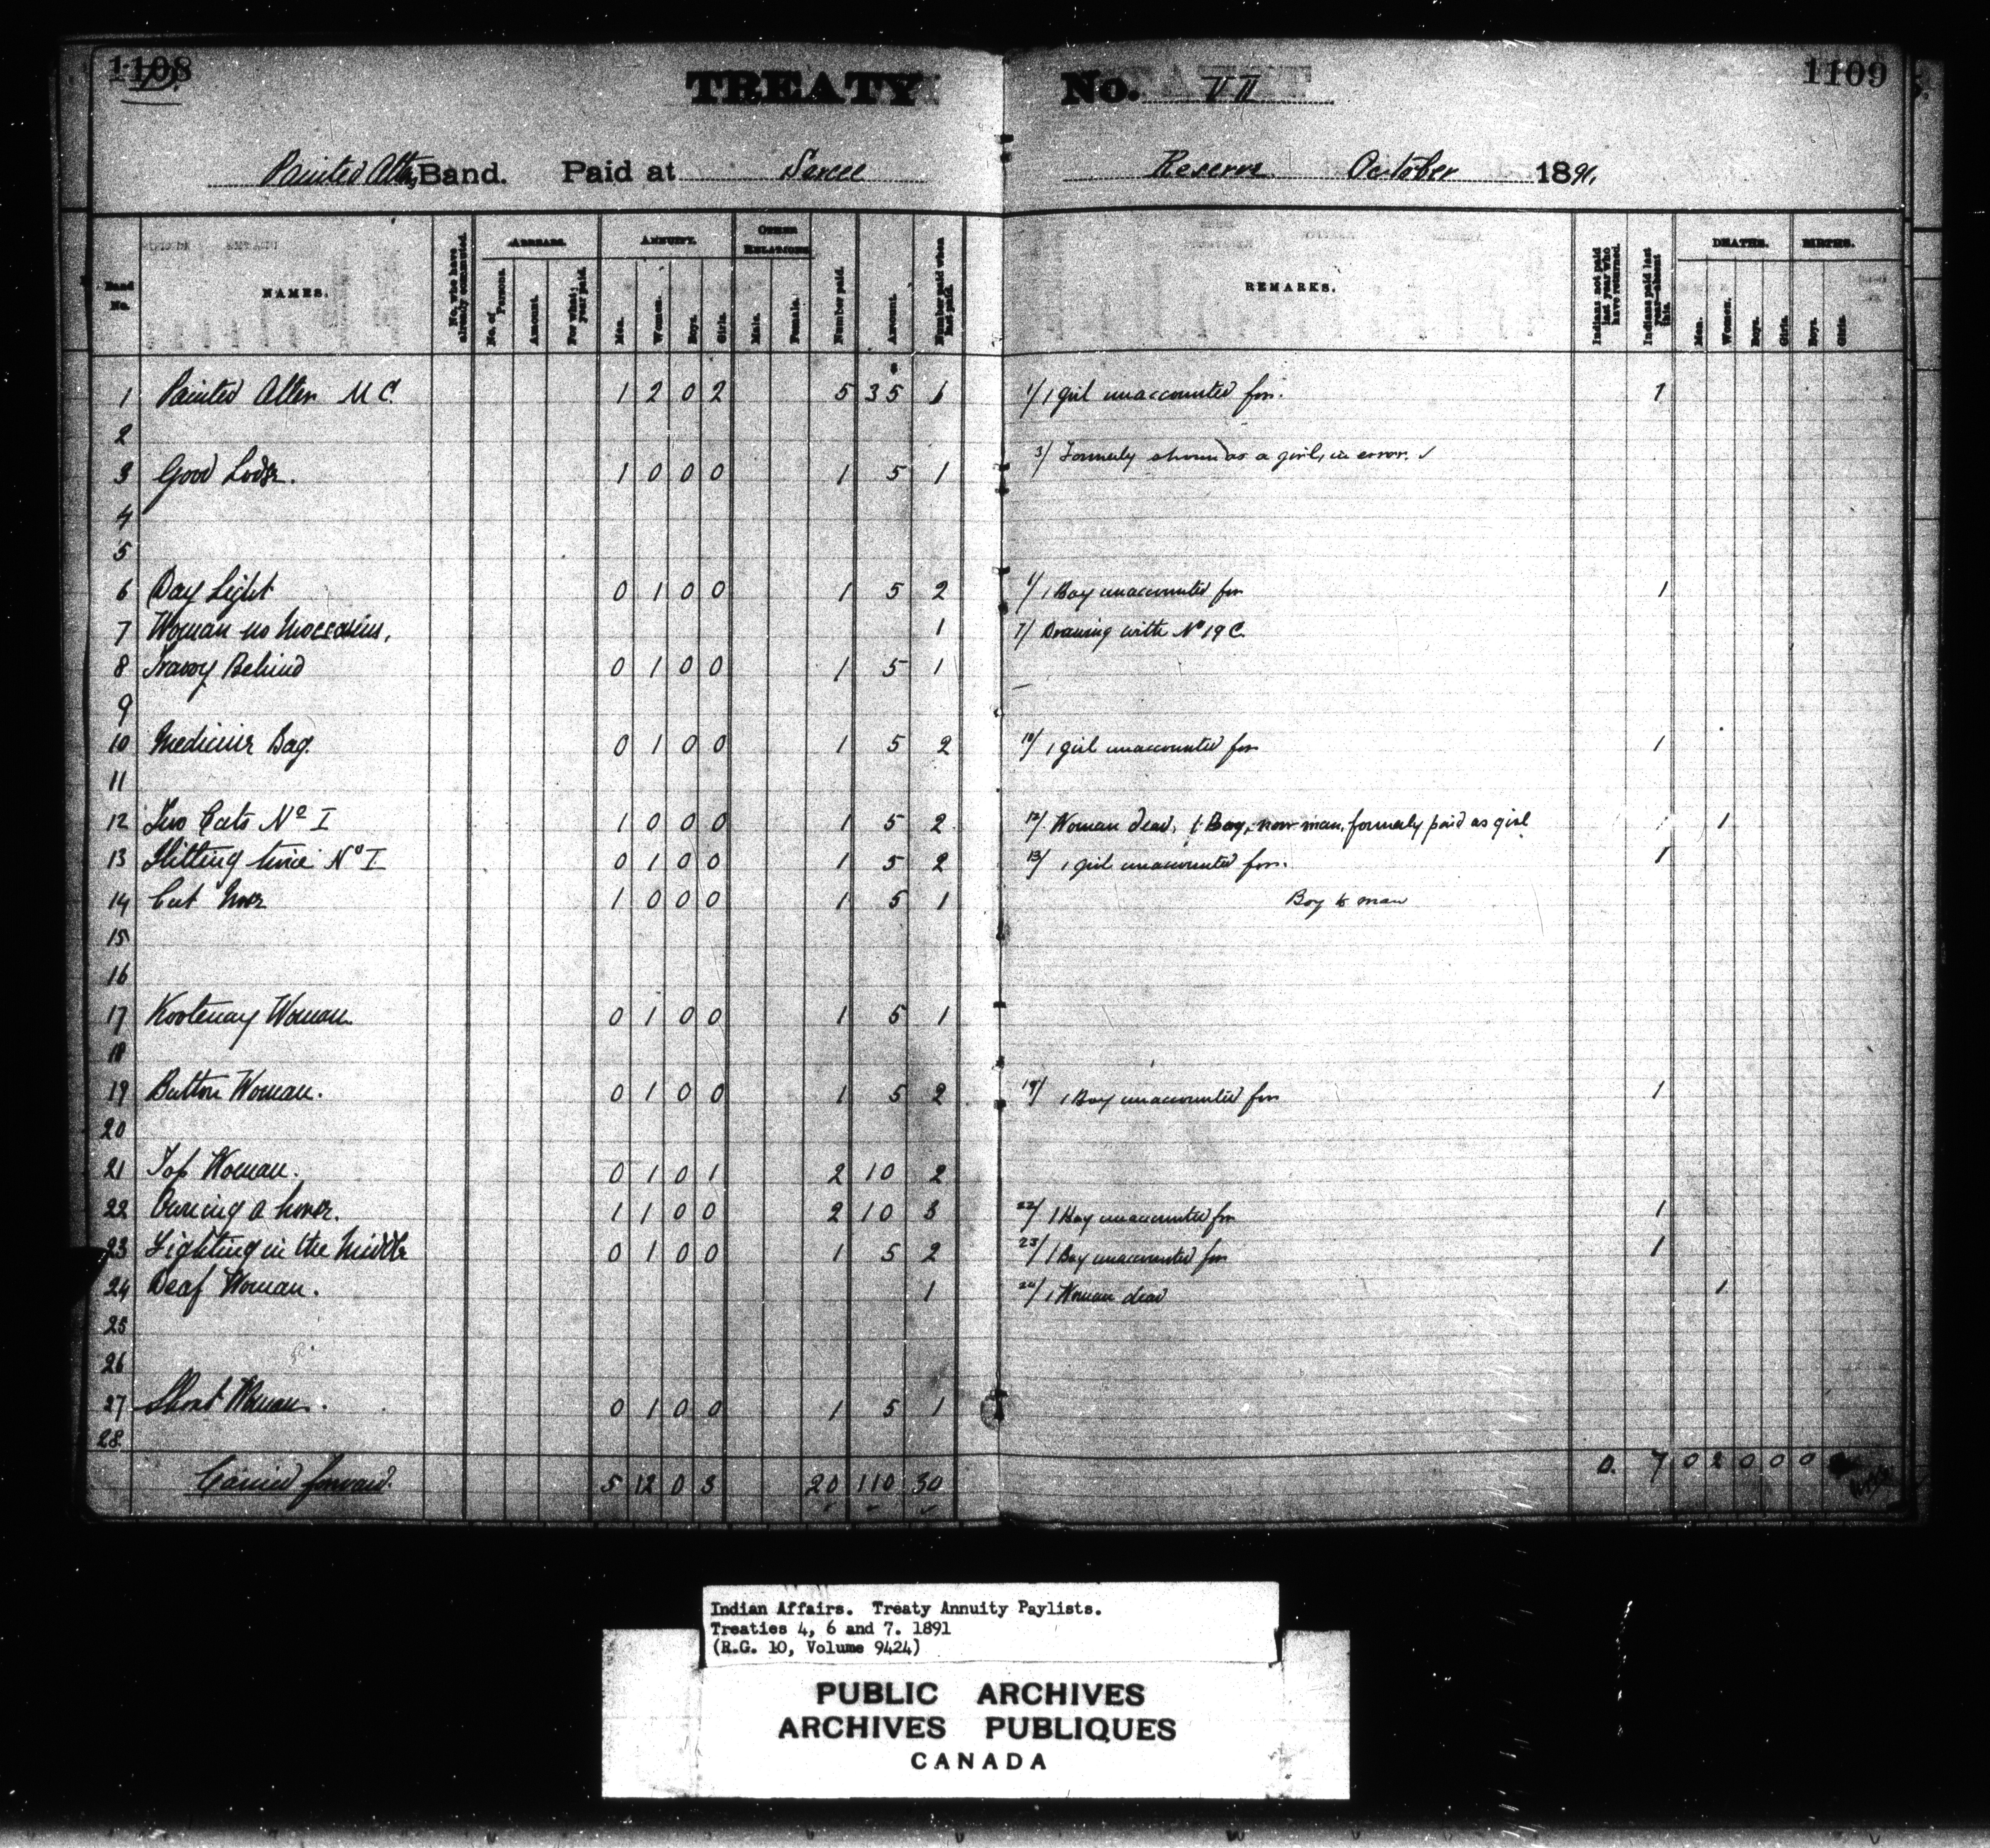 1108
TREATY No. VII 1109
Painted Otter Band. Paid at Sarcee Reserve October 1891,
Band No.
NAMES.
No. who have already commuted.
ARREARS.
No. of Persons.
Amount.
For what year paid.
ANNUITY.
Men.
Women.
Boys.
Girls.
OTHER RELATIONS
Male.
Female.
Number paid.
Amount.
Number paid when last paid.
REMARKS.
Indians not paid last year who have returned.
Indians paid last year—absent this.
DEATHS.
Men.
Women.
Boys.
Girls.
BIRTHS.
Boys.
Girls.
1 Painted Otter M C. 1 2 0 2 5 35 6 1/ 1 girl unaccounted for. 1
2
3 Good Lodge. 1 0 0 0 1 5 1 3/ Formerly shown as a girl, in error. ✓
4
5
6 Day Light 0 1 0 0 1 5 2 1 Boy unaccounted for 1
7 Woman no Moccasins, 1 7/ Drawing with No 19 C.
8 Behind 0 1 0 0 1 5 1
9
10 Medicine Bag. 0 1 0 0 1 5 2 10/ 1 girl unaccounted for 1
11
12 Two Cuts No I 1 0 0 0 1 5 2 12/ Woman dead, 1 Boy, now man, formerly paid as girl 1
13 Hitting twice No I 0 1 0 0 1 5 2 13/ 1 girl unaccounted for. 1
14 Cut Nose 1 0 0 0 1 5 1 Boy to man
15
16
17 Kootenay Woman. 0 1 0 0 1 5 1
18
19 Button Woman. 0 1 0 0 1 5 2 19/ 1 Boy unaccounted for 1
20
21 Top Woman. 0 1 0 1 2 10 2
22 Owning a horse. 1 1 0 0 2 10 3 22/ 1 Boy unaccounted for 1
23 Fighting in the Middle 0 1 0 0 1 5 2 23/ 1 Boy unaccounted for 1
24 Deaf Woman. 1 24/ 1 Woman dead 1
25
26
27 Short Woman. 0 1 0 0 1 5 1
28
Carried forward. 5 12 0 3 20 110 30 0. 7 0 2 0 0 0
Indian Affairs. Treaty Annuity Paylists.
Treaties 4, 6 and 7. 1891
(R.G. 10, Volume 9424)
PUBLIC ARCHIVES
ARCHIVES PUBLIQUES
CANADA